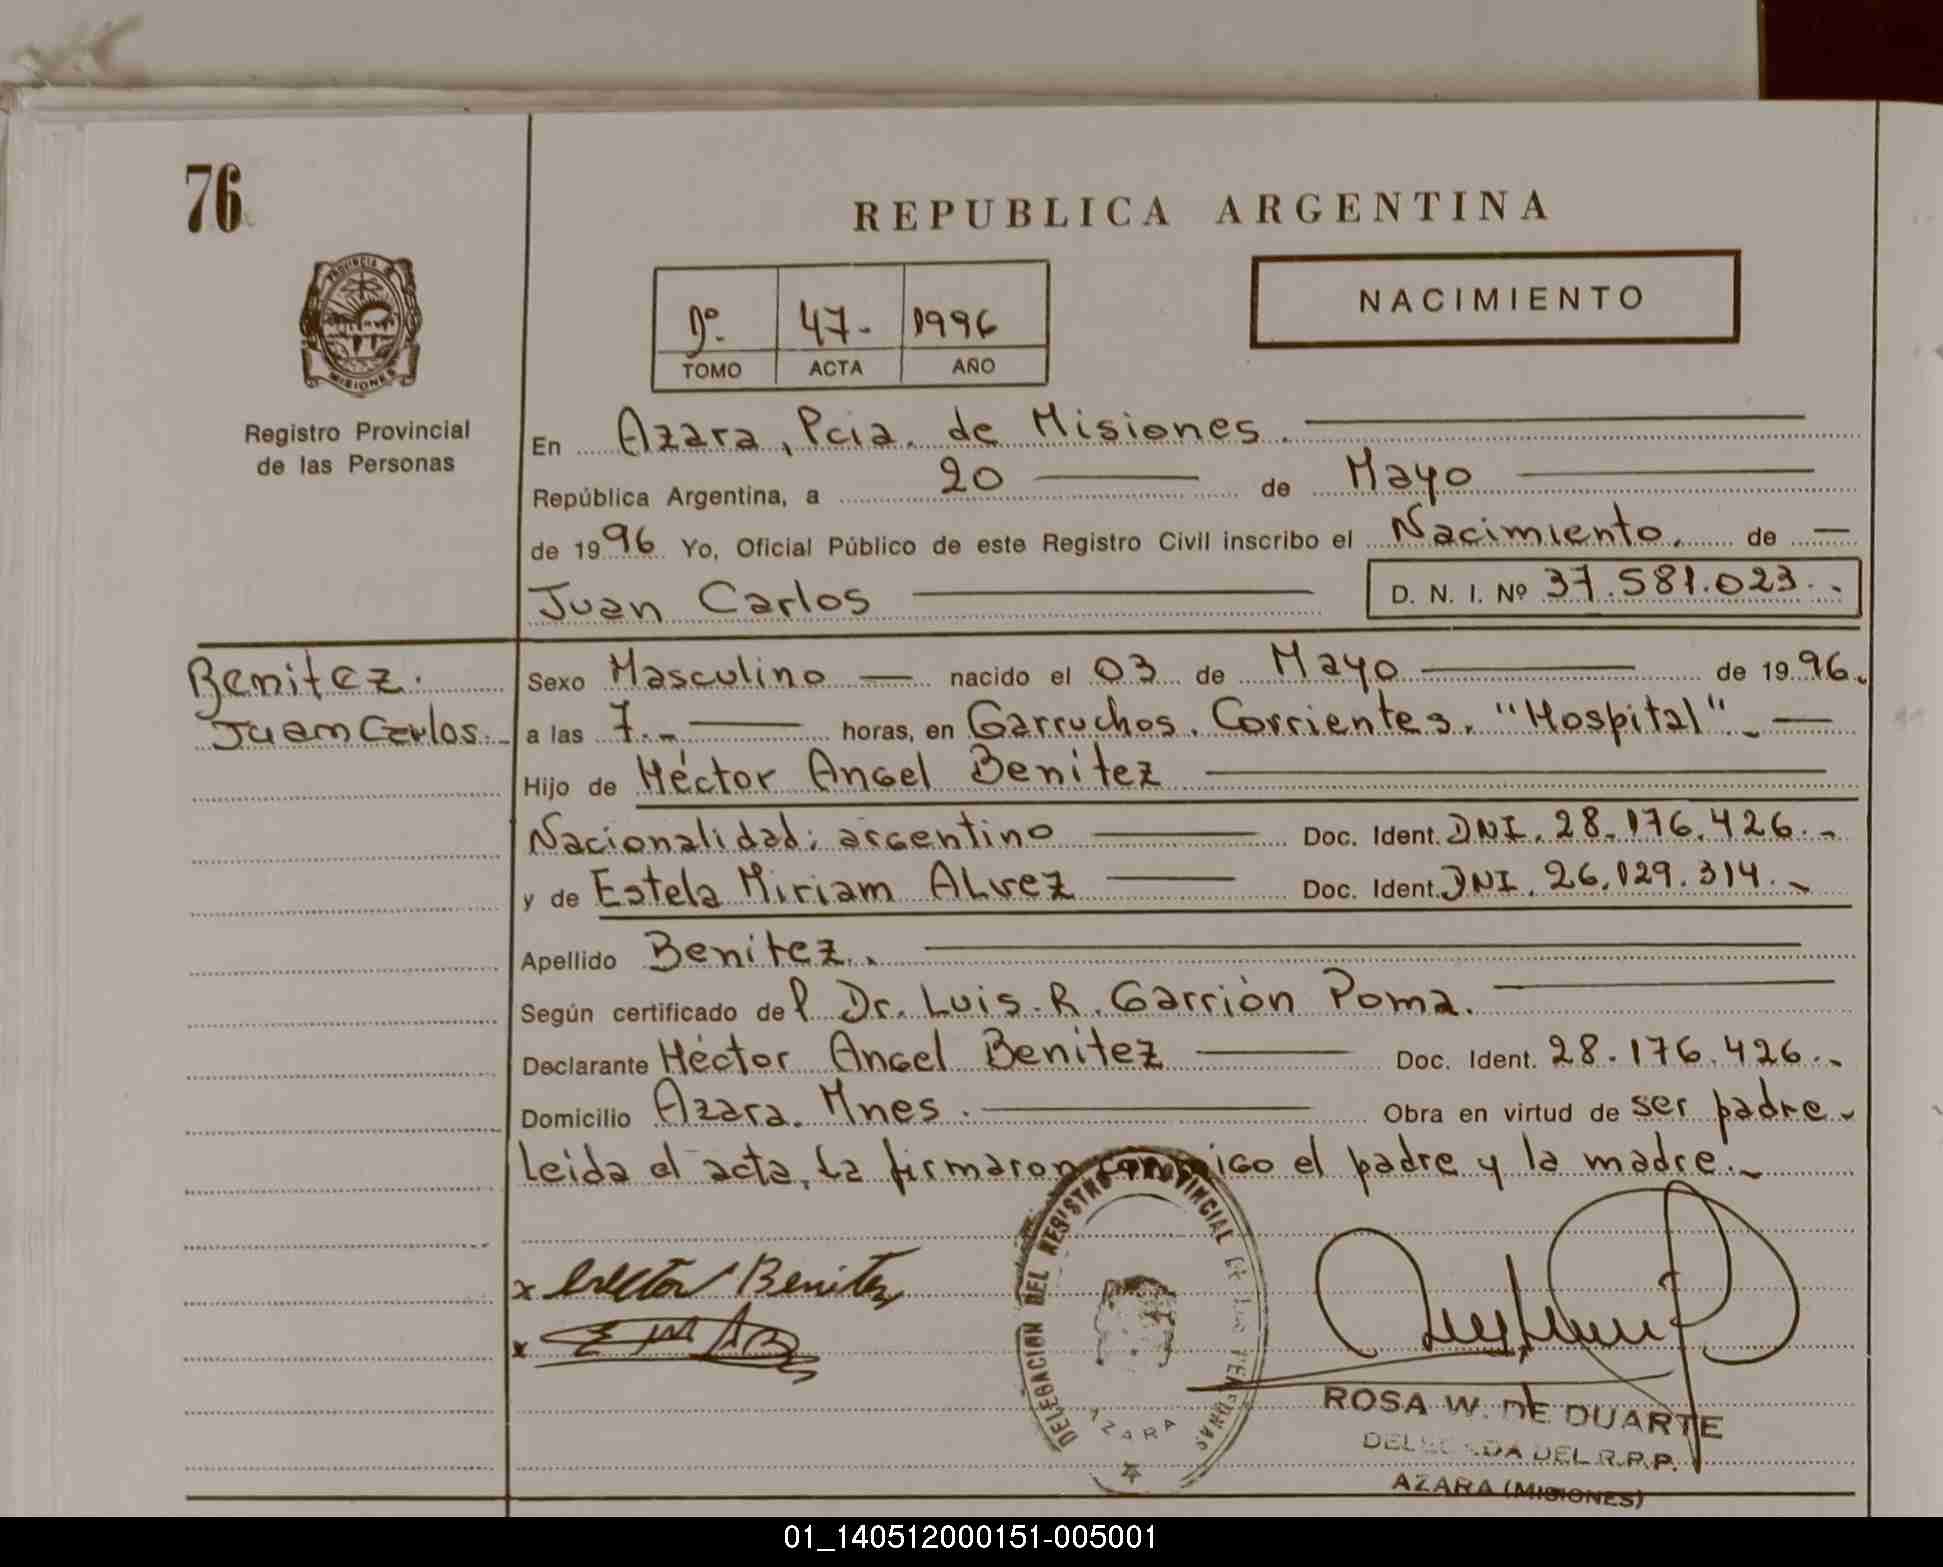 76
REPUBLICA ARGENTINA
PROVINCIA DE
MISIONES
Registro Provincial
de las Personas
1º. 47.- 1996
TOMO ACTA AÑO
NACIMIENTO
En Azara, Pcia. de Misiones.
República Argentina, a 20 de Mayo
de 1996 Yo, Oficial Público de este Registro Civil inscribo el Nacimiento. de
Juan Carlos D. N. I. Nº 37.581.023.-
Benitez.
Juan Carlos.-
Sexo Masculino — nacido el 03 de Mayo de 1996.
a las 7.- horas, en Garruchos. Corrientes. "Hospital".-
Hijo de Héctor Angel Benítez
Nacionalidad: argentino Doc. Ident. DNI. 28.176.426.-
y de Estela Miriam ALvez Doc. Ident. DNI. 26.129.314.-
Apellido Benítez.
Según certificado del Dr. Luis R. Garrión Poma.
Declarante Héctor Angel Benítez Doc. Ident. 28.176.426.-
Domicilio Azara. Mnes. Obra en virtud de ser padre-
Leida el acta, la firmaron conmigo el padre y la madre.-
x Hector Benitez
x E M A
DELEGACION DEL REGISTRO PROVINCIAL DE LAS PERSONAS
AZARA
ROSA W. DE DUARTE
DELEGADA DEL R.P.P.
AZARA (MISIONES)
01_140512000151-005001